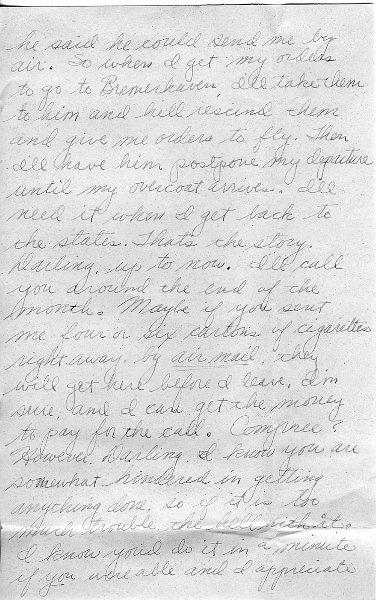 he said he could send me by
air. So when I get my orders
to go to Bremerhaven, I'll take them
to him and hell rescind them
and give me orders to fly. Then
I'll have him postpone my departure
until my overcoat arrives. I'll
need it when I get back to
the states. Thats the story,
Darling, up to now. I'll call
you around the end of the
month. Maybe if you sent
me four or six cartons of cigarettes
right away, by air mail, they
will get here before I leave, I'm
sure, and I can get the money
to pay for the call. Compree?
However, Darling, I know you are
somewhat hindered in getting
anything done, so if it is too
much trouble the hell with it.
I know you'd do it in a minute
if you were able and I appreciate